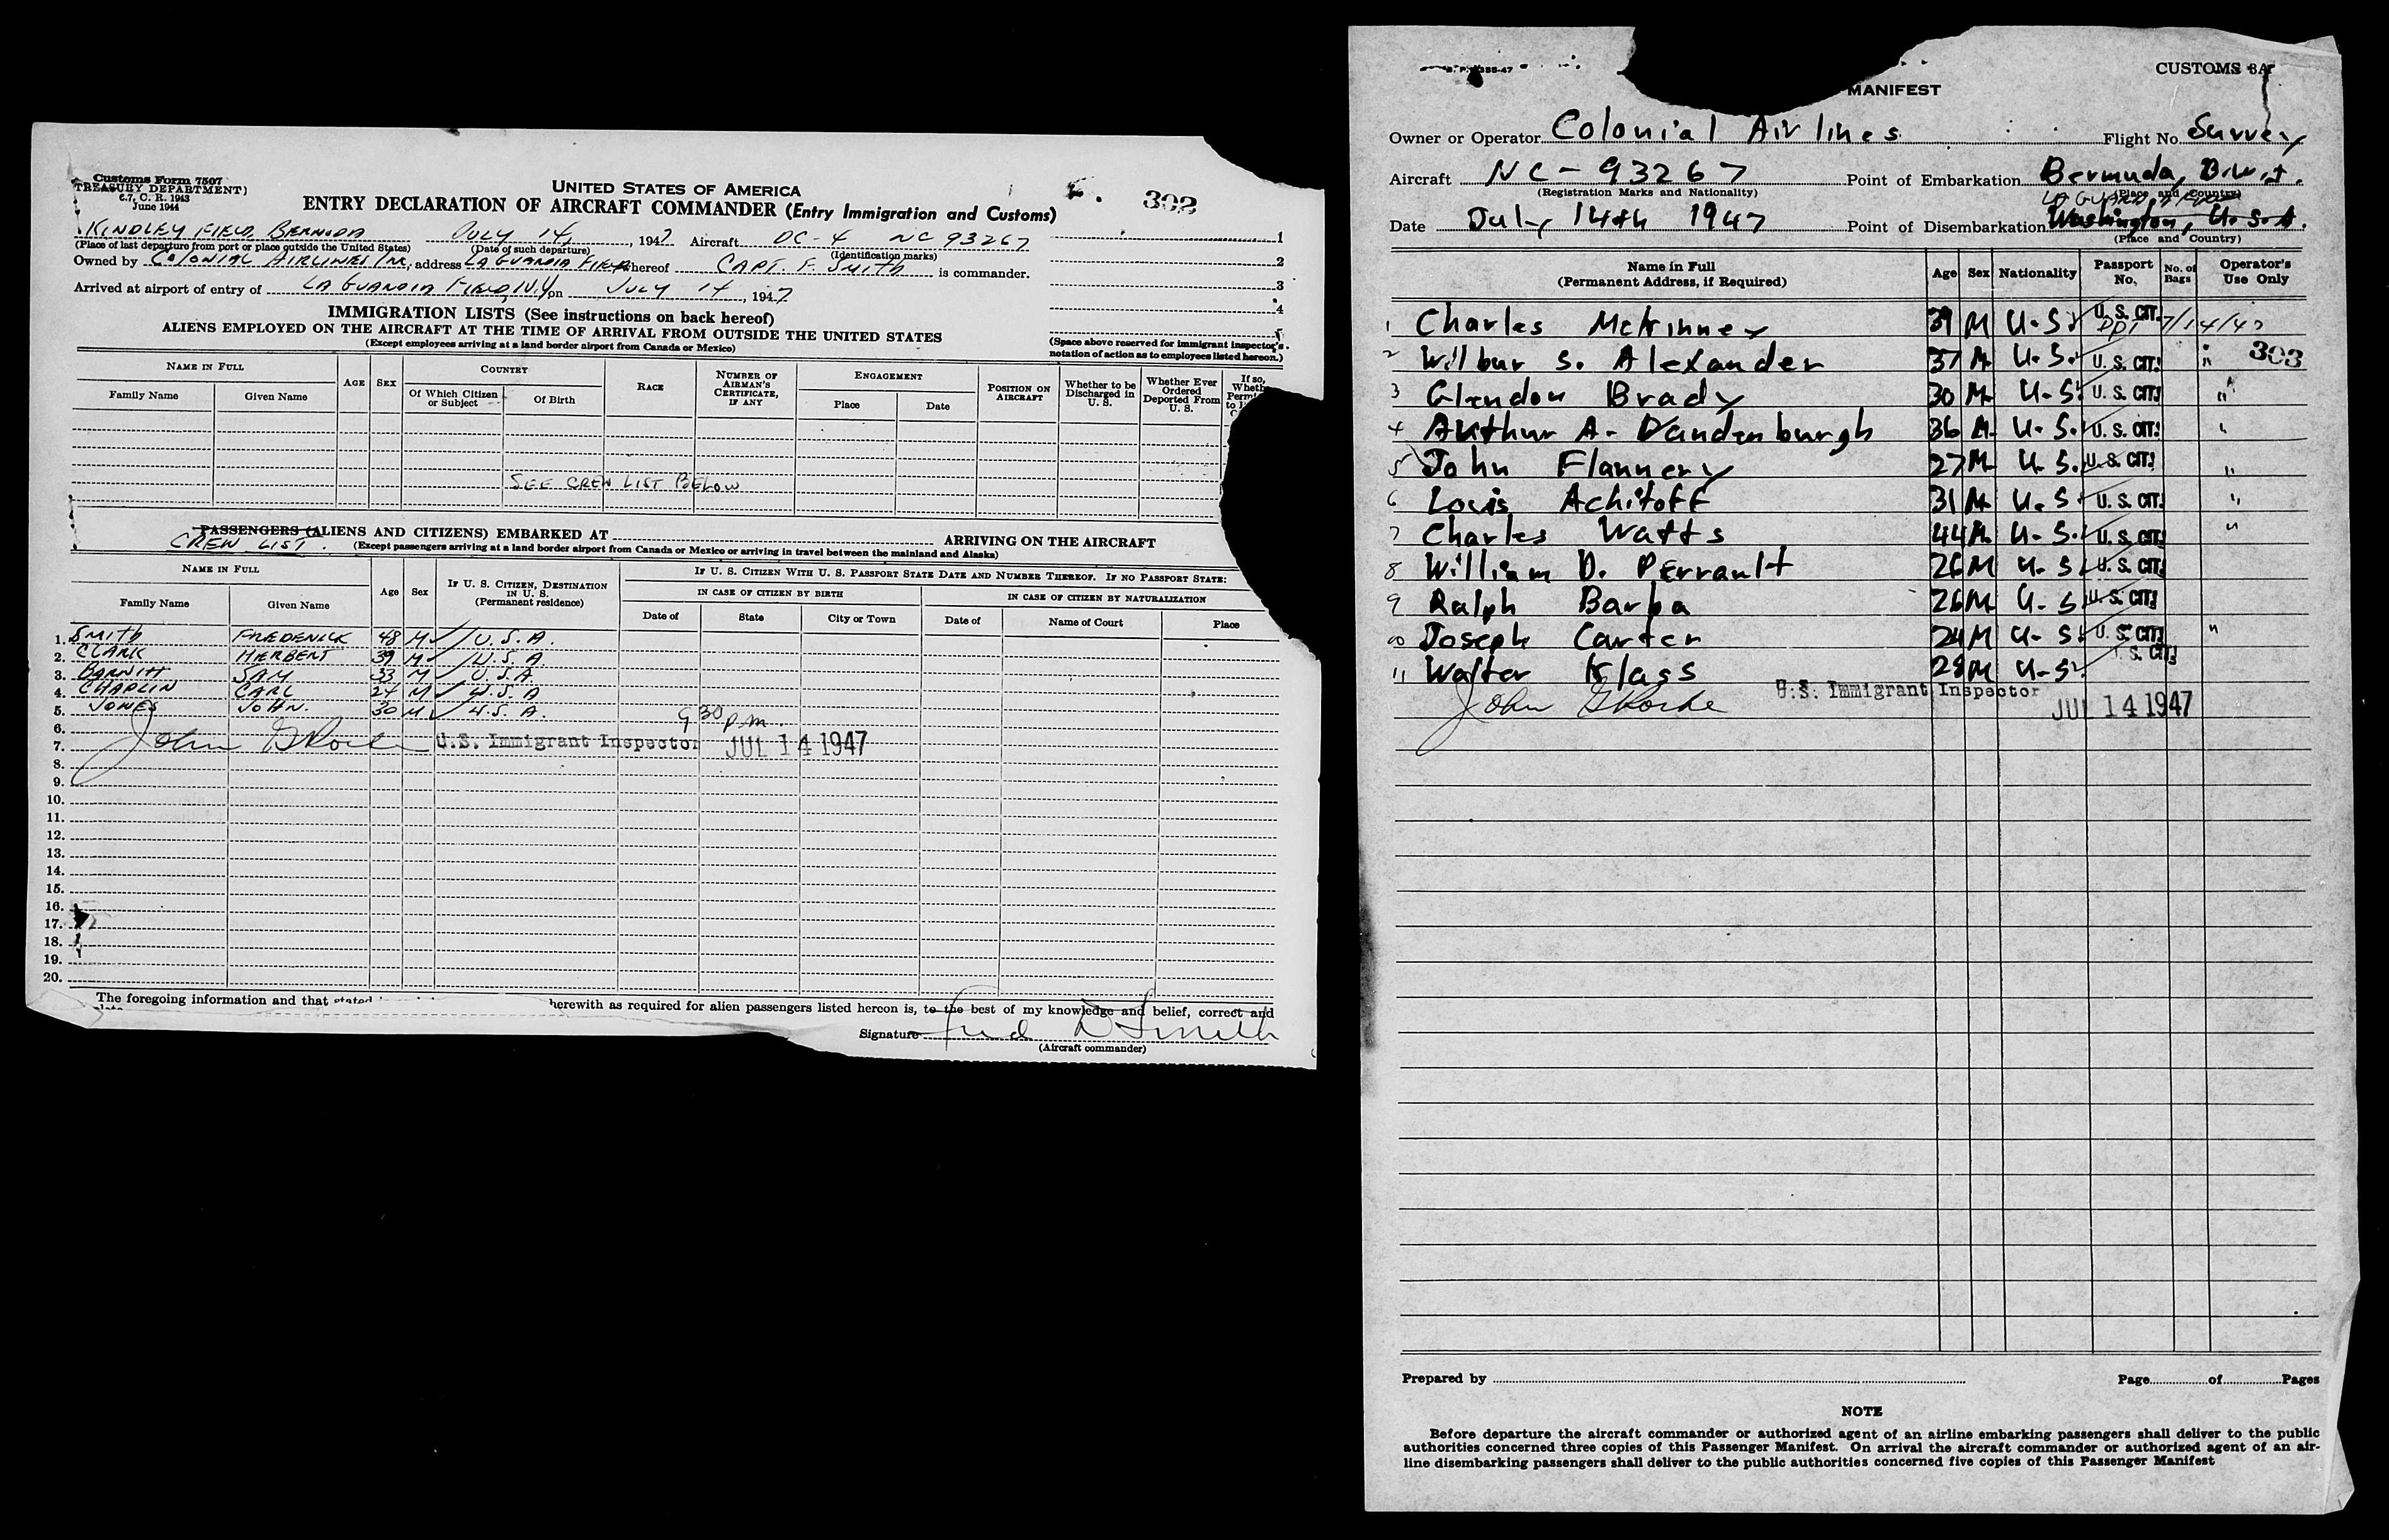 Customs Form 7507
TREASURY DEPARTMENT)
6.7, C. R. 1943
June 1944
UNITED STATES OF AMERICA
ENTRY DECLARATION OF AIRCRAFT COMMANDER (Entry Immigration and Customs)
302
KINDLEY FIELD, BERMUDA JULY 14, 1947 Aircraft DC-4 NC 93267
(Place of last departure from port or place outside the United States) (Date of such departure) (Identification marks)
Owned by COLONIAL AIRLINES INC, address LA GUARDIA FIELD hereof CAPT. F. SMITH is commander.
Arrived at airport of entry of LA GUARDIA FIELD, N.Y. on JULY 14, 1947
1
2
3
4
5
IMMIGRATION LISTS (See instructions on back hereof)
ALIENS EMPLOYED ON THE AIRCRAFT AT THE TIME OF ARRIVAL FROM OUTSIDE THE UNITED STATES
(Except employees arriving at a land border airport from Canada or Mexico)
(Space above reserved for immigrant inspector's
notation of action as to employees listed hereon.)
NAME IN FULL
Family Name Given Name
AGE SEX
COUNTRY
Of Which Citizen or Subject
Of Birth
RACE
NUMBER OF AIRMAN'S CERTIFICATE, IF ANY
ENGAGEMENT
Place Date
POSITION ON AIRCRAFT
Whether to be Discharged in U. S.
Whether Ever Ordered Deported From U. S.
If so,
SEE CREW LIST BELOW
PASSENGERS (ALIENS AND CITIZENS) EMBARKED AT ARRIVING ON THE AIRCRAFT
CREW LIST.
(Except passengers arriving at a land border airport from Canada or Mexico or arriving in travel between the mainland and Alaska)
NAME IN FULL
Family Name Given Name
Age Sex
IF U. S. CITIZEN, DESTINATION IN U. S.
(Permanent residence)
IF U. S. CITIZEN WITH U. S. PASSPORT STATE DATE AND NUMBER THEREOF. IF NO PASSPORT STATE:
IN CASE OF CITIZEN BY BIRTH IN CASE OF CITIZEN BY NATURALIZATION
Date of State City or Town Date of Name of Court Place
1. SMITH FREDERICK 48 M U.S.A.
2. CLARK HERBERT 39 M U.S.A
3. BARNITH SAM 33 M U.S.A
4. CHAPLIN CARL 27 M U.S.A
5. JONES JOHN. 30 M U.S.A.
6. 9 30 p.m.
7. U.S. Immigrant Inspector JUL 14 1947
8.
9.
10.
11.
12.
13.
14.
15.
16.
17.
18.
19.
20.
The foregoing information and that stated herewith as required for alien passengers listed hereon is, to the best of my knowledge and belief, correct and
Signature Fred D Smith
(Aircraft commander)
CUSTOMS 8A
MANIFEST
Owner or Operator Colonial Airlines Flight No. Survey
Aircraft NC-93267 Point of Embarkation Bermuda, B.W.I.
(Registration Marks and Nationality) (Place and Country)
LA GUARDIA FIELD
Date July 14th 1947 Point of Disembarkation Washington, U.S.A.
(Place and Country)
Name in Full
(Permanent Address, if Required)
Age Sex Nationality Passport No. No. of Bags Operator's Use Only
1 Charles McKinney 39 M U.S. U. S. CIT. DDT 7/14/47
303
2 Wilbur S. Alexander 37 M U.S. U. S. CIT. "
3 Glendon Brady 30 M U.S. U. S. CIT. "
4 Arthur A. Vandenburgh 36 M U.S. U. S. CIT. "
5 John Flannery 27 M U.S. U. S. CIT. "
6 Louis Achitoff 31 M U.S. U. S. CIT. "
7 Charles Watts 44 M U.S. U. S. CIT. "
8 William D. Perrault 26 M U.S. U. S. CIT.
9 Ralph Barba 26 M U.S. U. S. CIT.
10 Joseph Carter 24 M U.S. U. S. CIT. "
11 Walter Klass 28 M U.S. U. S. CIT.
U.S. Immigrant Inspector
JUL 14 1947
Prepared by Page of Pages
NOTE
Before departure the aircraft commander or authorized agent of an airline embarking passengers shall deliver to the public
authorities concerned three copies of this Passenger Manifest. On arrival the aircraft commander or authorized agent of an air-
line disembarking passengers shall deliver to the public authorities concerned five copies of this Passenger Manifest